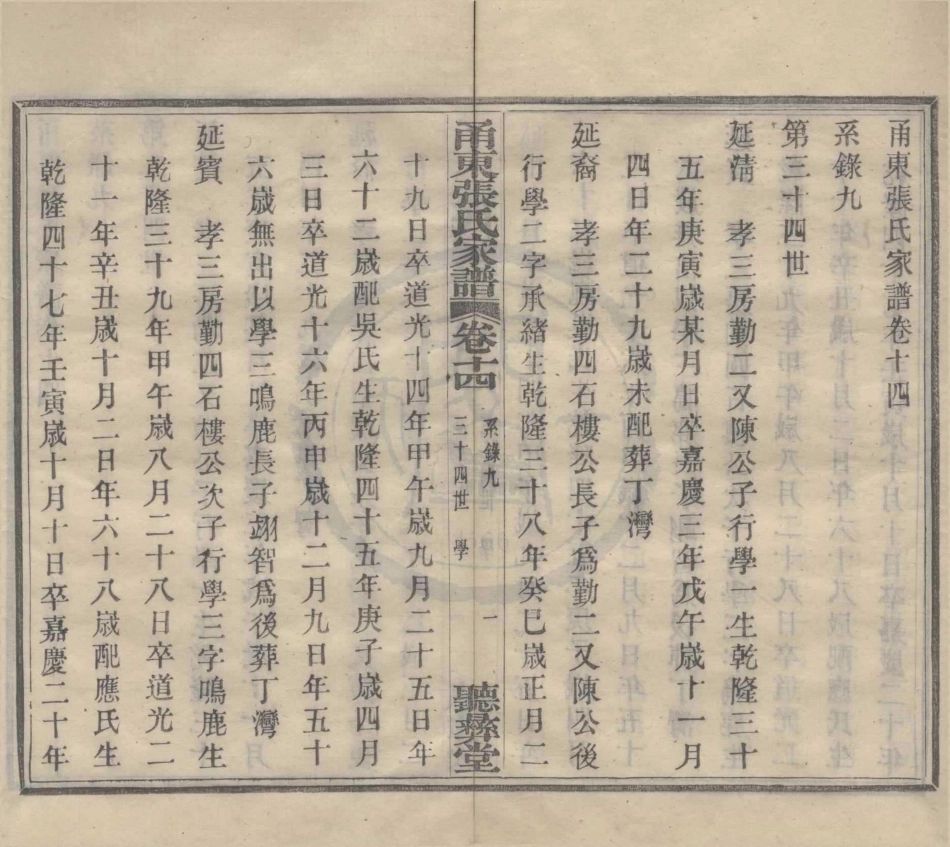 甬東張氏家譜卷十四
系錄九
第三十四世
延淸　孝三房勤二又陳公子行學一生乾隆三十
五年庚寅歲某月日卒嘉慶三年戊午歲十一月
四日年二十九歲未配葬丁灣
延裔　孝三房勤四石樓公長子爲勤二又陳公後
行學二字承緒生乾隆三十八年癸巳歲正月二
甬東張氏家譜　卷十四　系錄九　三十四世　學　一　聽彝堂
十九日卒道光十四年甲午歲九月二十五日年
六十二歲配吳氏生乾隆四十五年庚子歲四月
三日卒道光十六年丙申歲十二月九日年五十
六歲無出以學三鳴鹿長子翊智爲後葬丁灣
延賓　孝三房勤四石樓公次子行學三字鳴鹿生
乾隆三十九年甲午歲八月二十八日卒道光二
十一年辛丑歲十月二日年六十八歲配應氏生
乾隆四十七年壬寅歲十月十日卒嘉慶二十年